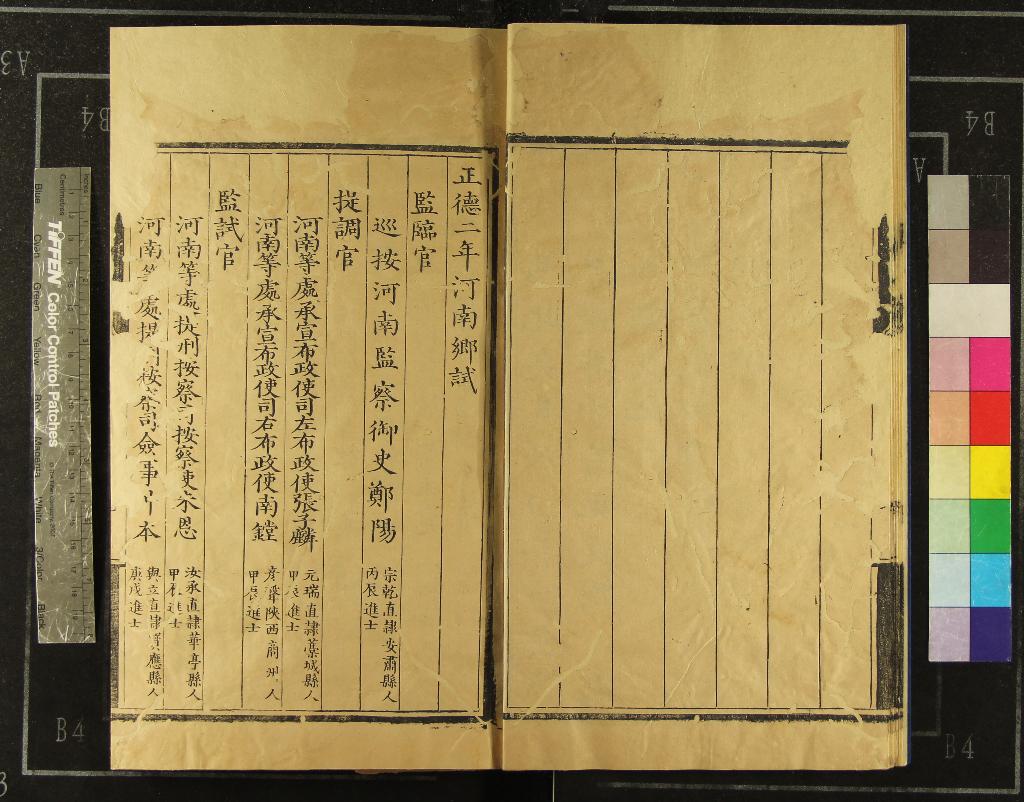 正德二年河南鄉試
監臨官
巡按河南監察御史鄭陽
宗乾直隸安肅縣人
丙辰進士
提調官
河南等處承宣布政使司左布政使張子麟
元瑞直隸藁城縣人
甲辰進士
河南等處承宣布政使司右布政使南鏜
陝西商州人
甲辰進士
監試官
河南等處提刑按察司按察使朱恩
汝承直隸華亭縣人
甲辰進士
河南等處提刑按察司僉事 本
與立直隸寶應縣人
庚戌進士
TIFFEN Color Control Patches
Centimetres
Blue
Green
Yellow
Magenta
White
3/Color
Black
A3
B4
B4
A
B4
B4
3